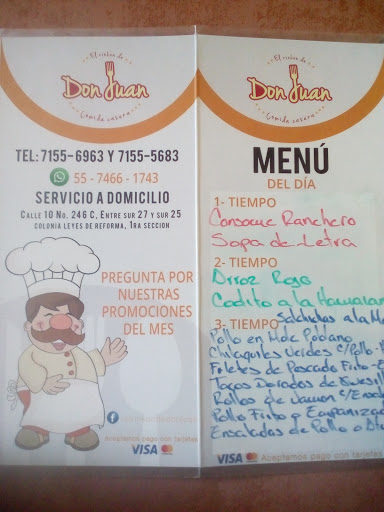 El rincón de
Don Juan
Comida casera
TEL: 7155-6963 Y 7155-5683
55 - 7466 - 1743
SERVICIO A DOMICILIO
CALLE 10 NO. 246 C, ENTRE SUR 27 Y SUR 25
COLONIA LEYES DE REFORMA, 1RA SECCION
PREGUNTA POR
NUESTRAS
PROMOCIONES
DEL MES
Aceptamos pago con tarjetas
VISA
El rincón de
Don Juan
Comida casera
MENÚ
DEL DÍA
1- TIEMPO
Consome Ranchero
Sopa de Letra
2- TIEMPO
Arroz Rojo
Codito a la Hawaian
3- TIEMPO
Salchichas a la
Pollo en Mole Poblano
Chilaquiles Verdes c/Pollo
Filetes de Pescado Frito
Tacos Dorados de
Rollos de Jamon c/
Pollo Frito y Empaniza
Ensaladas de Pollo o
VISA Aceptamos pago con tarjetas